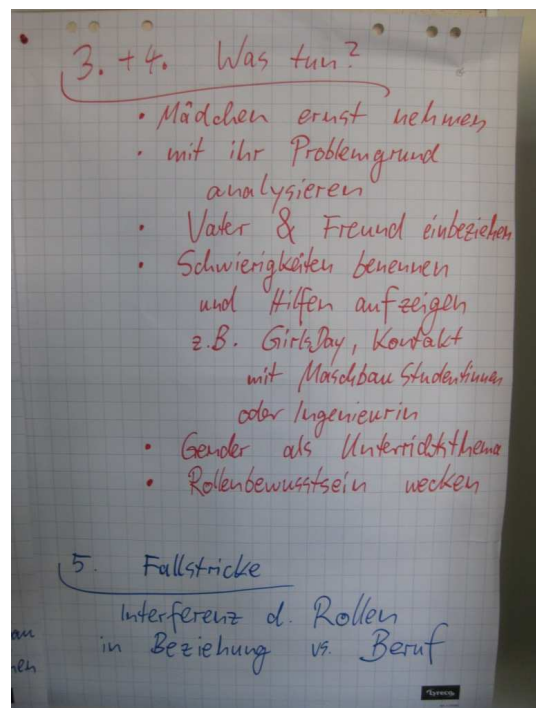 3. + 4. Was tun?
• Mädchen ernst nehmen
• mit ihr Problemgrund
analysieren
• Vater & Freund einbeziehen
• Schwierigkeiten benennen
und Hilfen aufzeigen
z.B. GirlsDay, Kontakt
mit Maschbau Studentinnen
oder Ingenieurin
• Gender als Unterrichtsthema
• Rollenbewusstsein wecken
5. Fallstricke
Interferenz d. Rollen
in Beziehung vs. Beruf